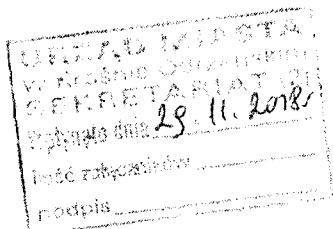 URZĄD MIASTA
w Krośnie Odrzańskim
SEKRETARIAT
Wpłynęło dnia 29. 11. 2018r.
Ilość załączników
podpis